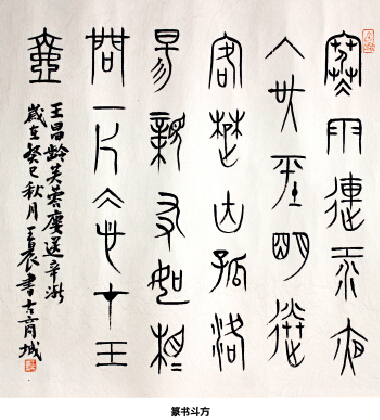 寒雨連江夜
入吳平明送
客楚山孤洛
昜親友如相
問一片冰心在玉
壺
王昌齡芙蓉廔送辛漸
歲在癸巳秋月王晨書古商城
篆书斗方